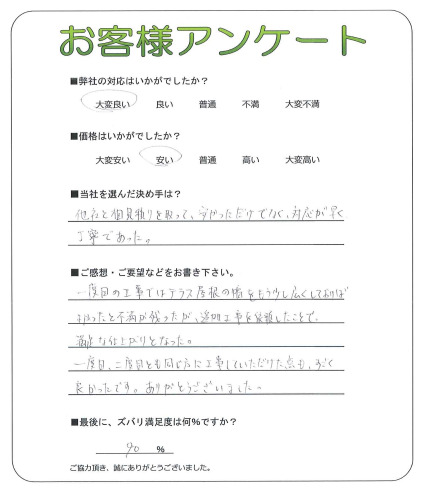 お客様アンケート
■弊社の対応はいかがでしたか？
大変良い 良い 普通 不満 大変不満
■価格はいかがでしたか？
大変安い 安い 普通 高い 大変高い
■当社を選んだ決め手は？
他社と相見積りを取って、安かっただけでなく、対応が早く
丁寧であった。
■ご感想・ご要望などをお書き下さい。
一度目の工事ではテラス屋根の幅をもう少し広くしておけば
よかったと不満が残ったが、追加工事を依頼したことで、
満足な仕上がりとなった。
一度目、二度目とも同じ方に工事していただけた点も、すごく
良かったです。ありがとうございました。
■最後に、ズバリ満足度は何％ですか？
90 ％
ご協力頂き、誠にありがとうございました。